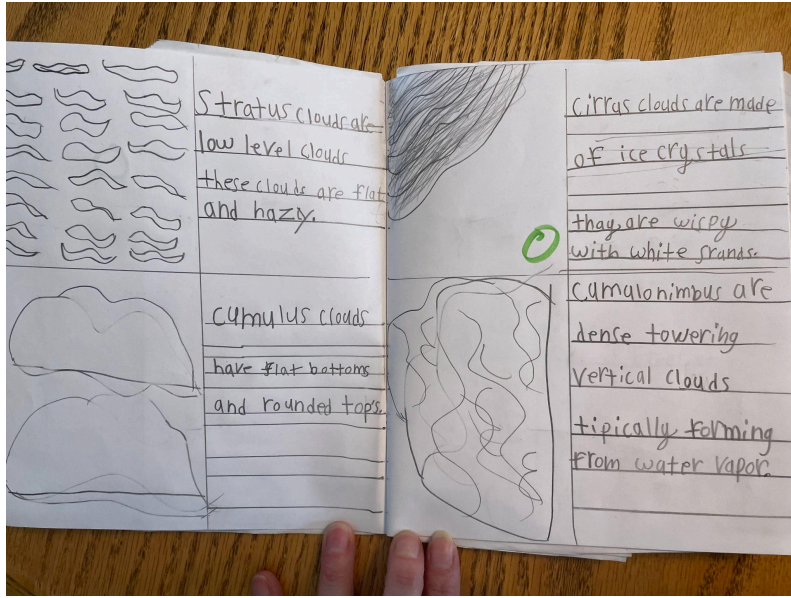 Stratus clouds are
low level clouds
these clouds are flat
and hazy.
cumulus clouds
have flat bottoms
and rounded tops.
cirrus clouds are made
of ice crystals
thay are wispy
with white srands.
cumulonimbus are
dense towering
vertical clouds
tipically forming
from water vapor.